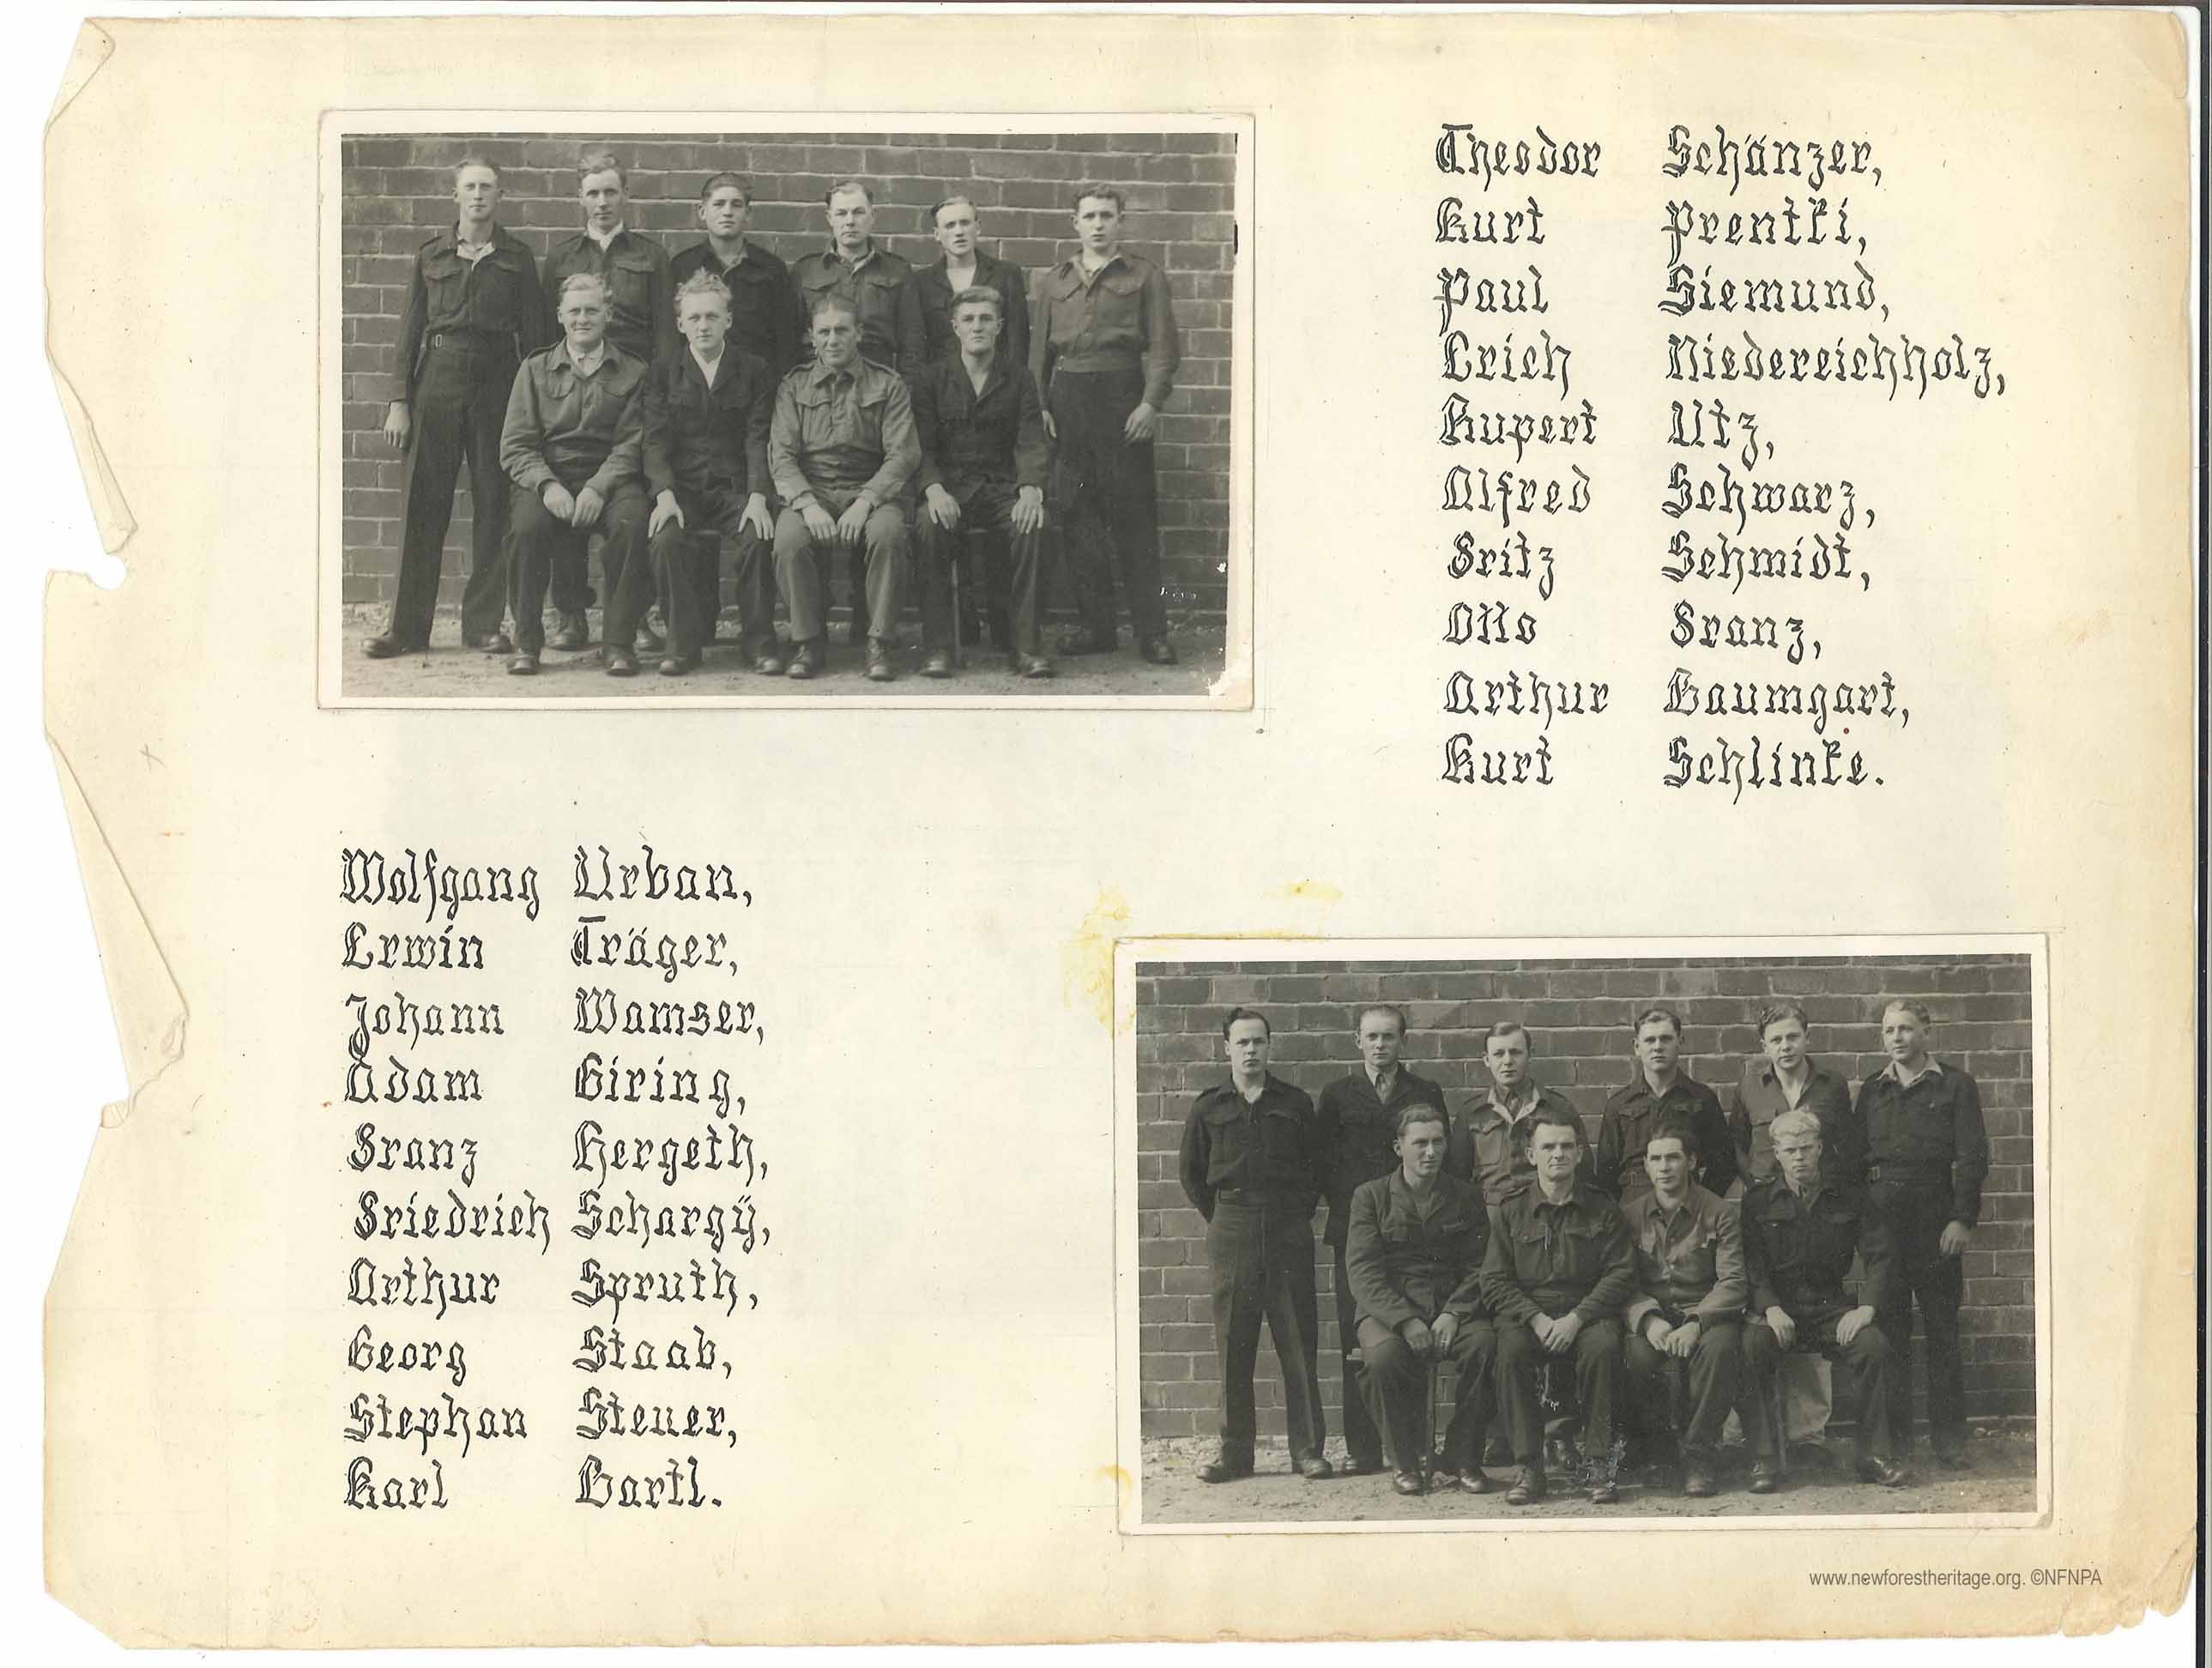 Theodor Schänzer,
Kurt Prentki,
Paul Siemund,
Erich Niedereichholz,
Rupert Utz,
Alfred Schwarz,
Fritz Schmidt,
Otto Franz,
Arthur Baumgart,
Kurt Schlinke.
Wolfgang Urban,
Erwin Träger,
Johann Wamser,
Adam Giring,
Franz Hergeth,
Friedrich Schargÿ,
Arthur Spruth,
Georg Staab,
Stephan Steuer,
Karl Bartl.
www.newforestheritage.org. ©NFNPA